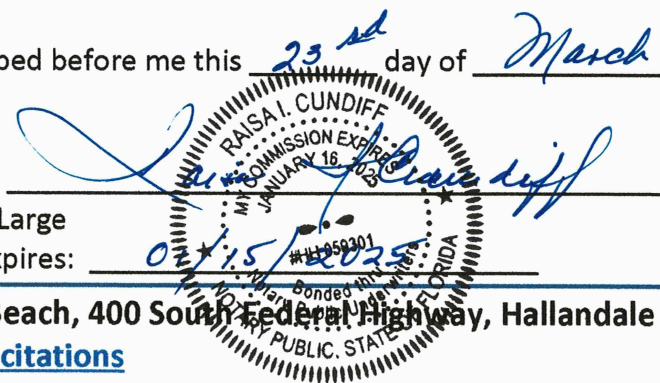 bed before me this 23rd day of March
Raisa I Cundiff
RAISA I. CUNDIFF
MY COMMISSION EXPIRES
JANUARY 16, 2025
#HH 059301
Bonded thru
Notary Public Underwriters
NOTARY PUBLIC, STATE OF FLORIDA
Large
pires: 01/15/2025
Beach, 400 South Federal Highway, Hallandale
citations